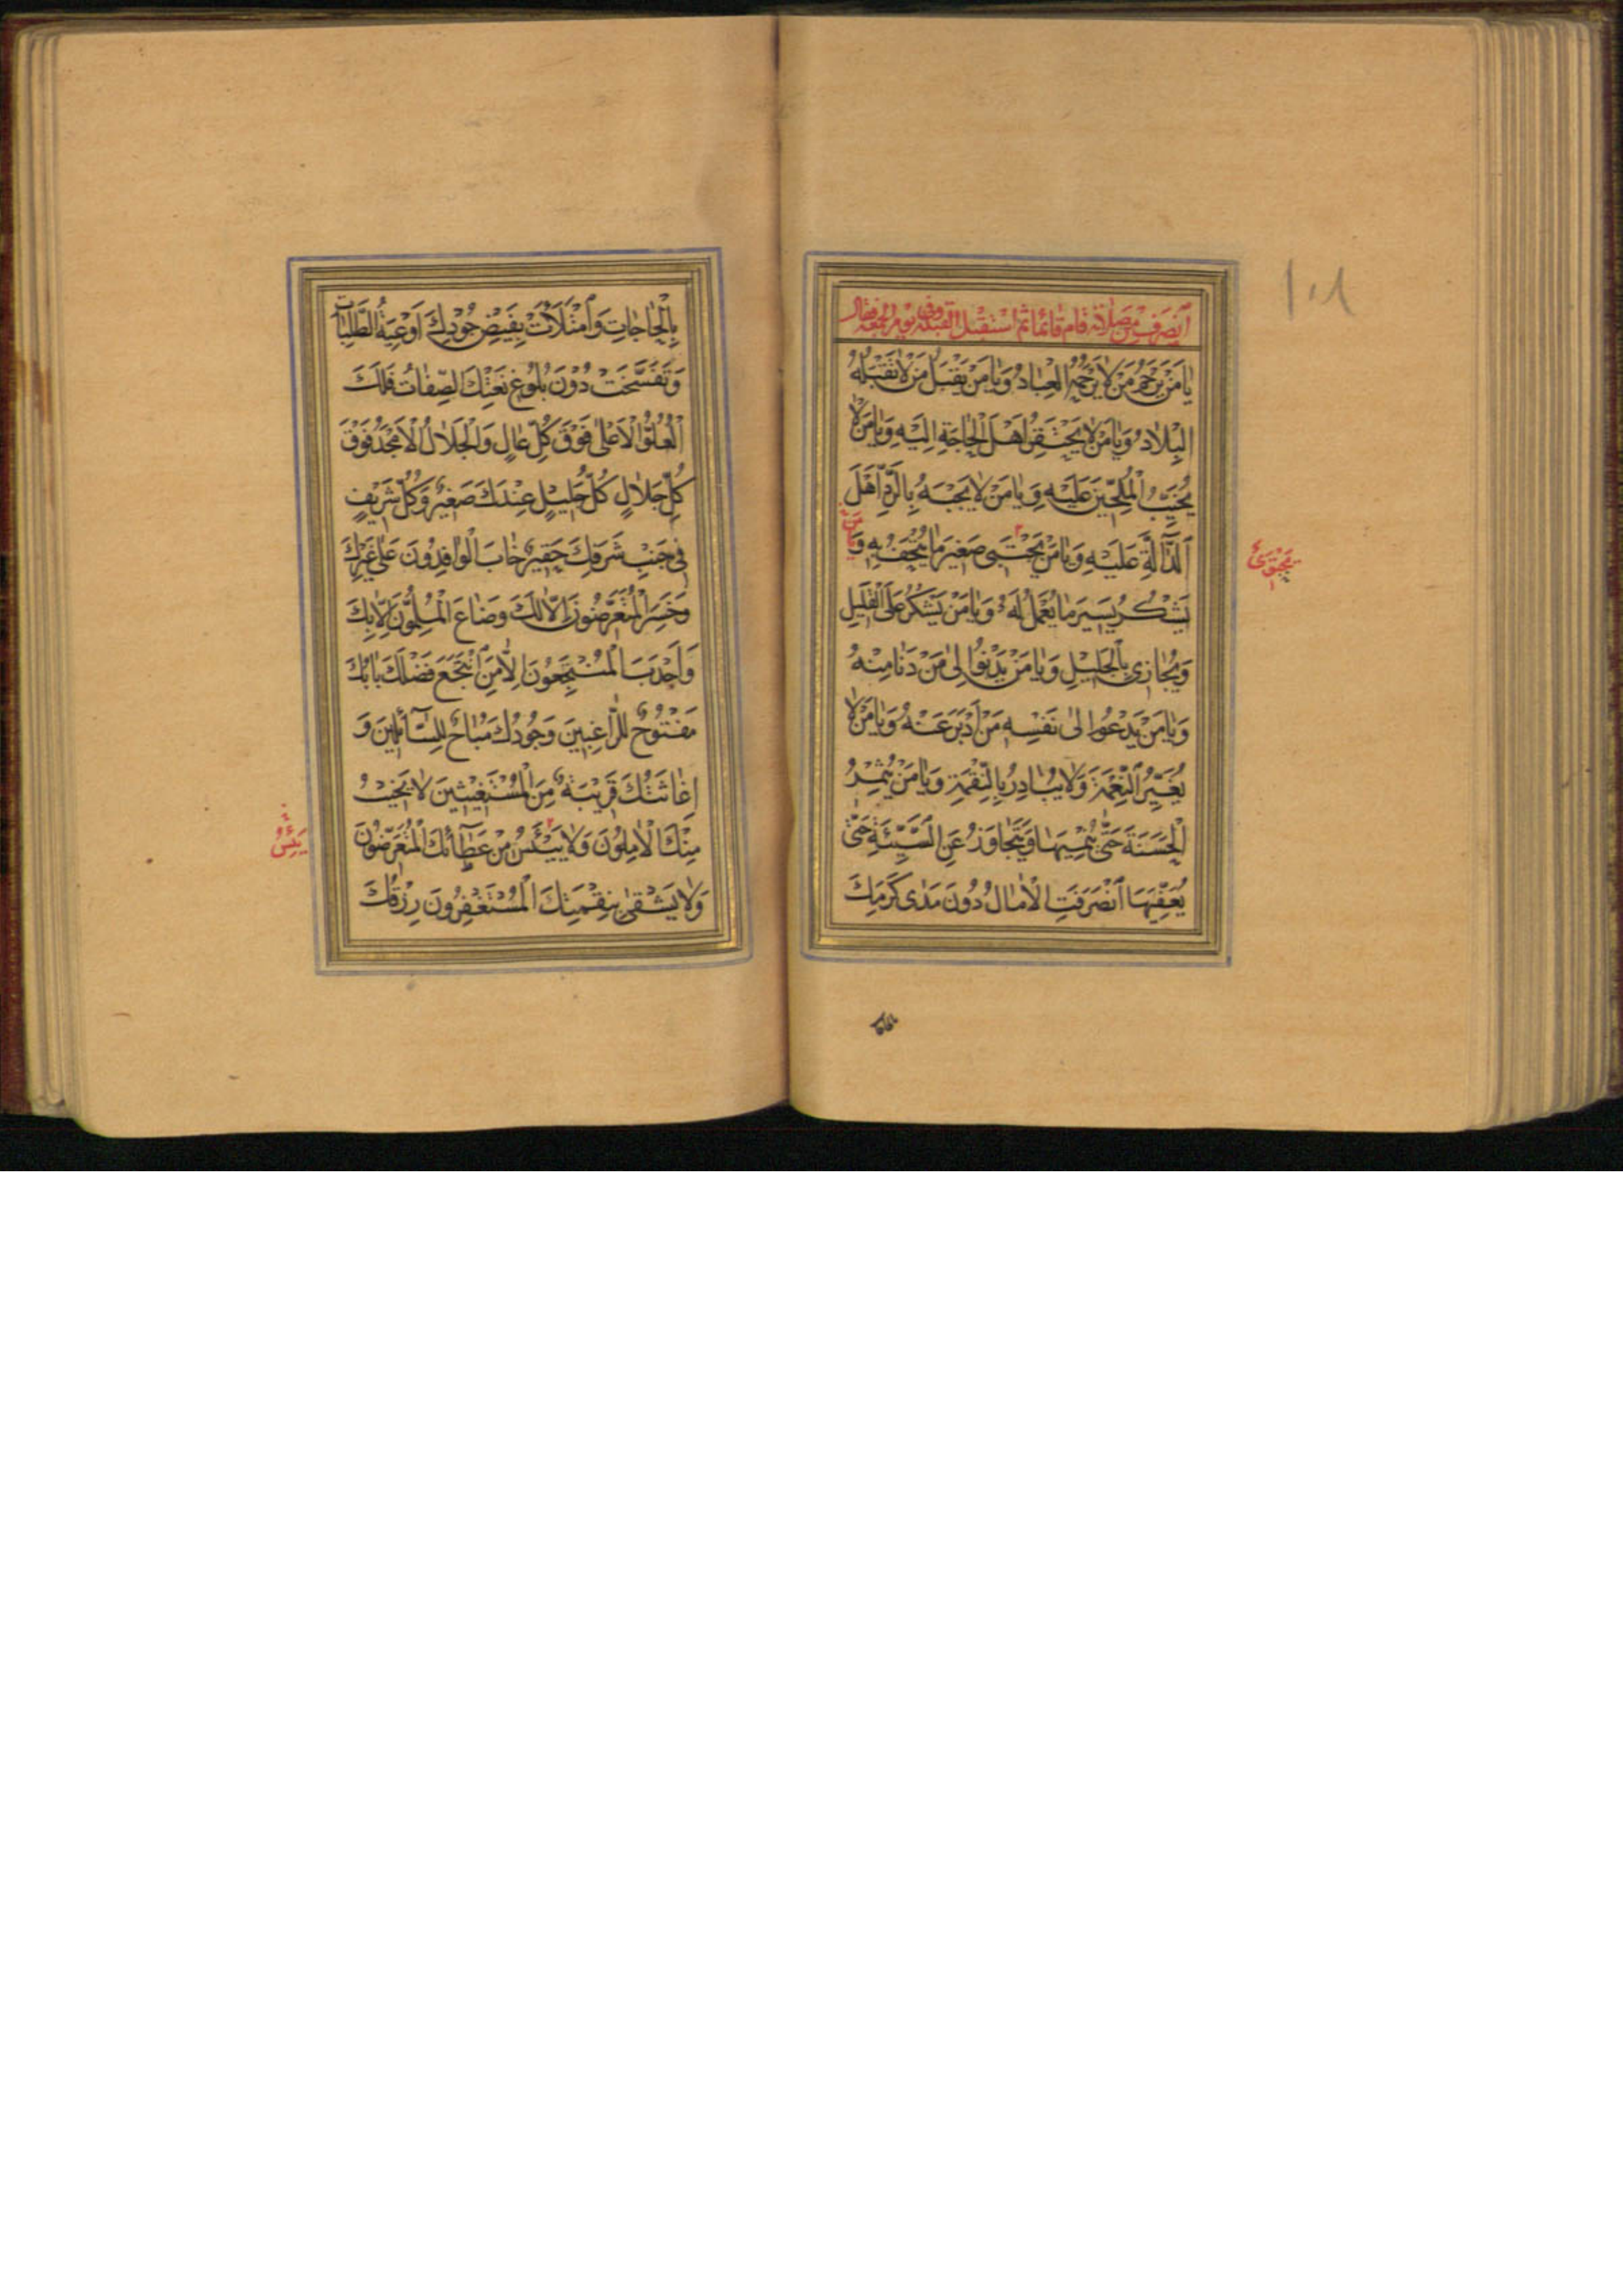 ١٠١
اَنْصَرَفَ مِنْ صَلَاتِهِ قَامَ قَائِمًا ثُمَّ اسْتَقْبَلَ الْقِبْلَةَ وَفِي يَوْمِ الْجُمُعَةِ فَقَالَ
يَا مَنْ يَرْحَمُ مَنْ لَا يَرْحَمُهُ الْعِبَادُ وَيَا مَنْ يَقْبَلُ مَنْ لَا تَقْبَلُهُ
الْبِلَادُ وَيَا مَنْ لَا يَحْتَقِرُ اَهْلَ الْحَاجَةِ اِلَيْهِ وَيَا مَنْ لَا
يُخَيِّبُ الْمُلِحِّينَ عَلَيْهِ وَيَا مَنْ لَا يَجْبَهُ بِالرَّدِّ اَهْلَ
الدَّالَّةِ عَلَيْهِ وَيَا مَنْ يَجْتَبِي صَغِيرَ مَا يُتْحَفُ بِهِ وَيَا مَنْ
يَشْكُرُ يَسِيرَ مَا يُعْمَلُ لَهُ وَيَا مَنْ يَشْكُرُ عَلَى الْقَلِيلِ
وَيُجَازِي بِالْجَلِيلِ وَيَا مَنْ يَدْنُو اِلَى مَنْ دَنَا مِنْهُ
وَيَا مَنْ يَدْعُو اِلَى نَفْسِهِ مَنْ اَدْبَرَ عَنْهُ وَيَا مَنْ لَا
يُغَيِّرُ النِّعْمَةَ وَلَا يُبَادِرُ بِالنِّقْمَةِ وَيَا مَنْ يُثْمِرُ
الْحَسَنَةَ حَتَّى يُنْمِيَهَا وَيَتَجَاوَزُ عَنِ السَّيِّئَةِ حَتَّى
يُعَفِّيَهَا اَنْصَرَفَتِ الْاٰمَالُ دُونَ مَدَى كَرَمِكَ
بِالْحَاجَاتِ وَامْتَلَأَتْ بِفَيْضِ جُودِكَ اَوْعِيَةُ الطَّلِبَاتِ
وَتَفَسَّخَتْ دُونَ بُلُوغِ نَعْتِكَ الصِّفَاتُ فَلَكَ
الْعُلُوُّ الْاَعْلَى فَوْقَ كُلِّ عَالٍ وَالْجَلَالُ الْاَمْجَدُ فَوْقَ
كُلِّ جَلَالٍ كُلُّ جَلِيلٍ عِنْدَكَ صَغِيرٌ وَكُلُّ شَرِيفٍ
فِي جَنْبِ شَرَفِكَ حَقِيرٌ خَابَ الْوَافِدُونَ عَلَى غَيْرِكَ
وَخَسِرَ الْمُتَعَرِّضُونَ اِلَّا لَكَ وَضَاعَ الْمُلِمُّونَ اِلَّا بِكَ
وَاَجْدَبَ الْمُنْتَجِعُونَ اِلَّا مَنِ انْتَجَعَ فَضْلَكَ بَابُكَ
مَفْتُوحٌ لِلرَّاغِبِينَ وَجُودُكَ مُبَاحٌ لِلسَّائِلِينَ وَ
اِغَاثَتُكَ قَرِيبَةٌ مِنَ الْمُسْتَغِيثِينَ لَا يَخِيبُ
مِنْكَ الْاٰمِلُونَ وَلَا يَيْئَسُ مِنْ عَطَائِكَ الْمُتَعَرِّضُونَ
وَلَا يَشْقَى بِنِقْمَتِكَ الْمُسْتَغْفِرُونَ رِزْقُكَ